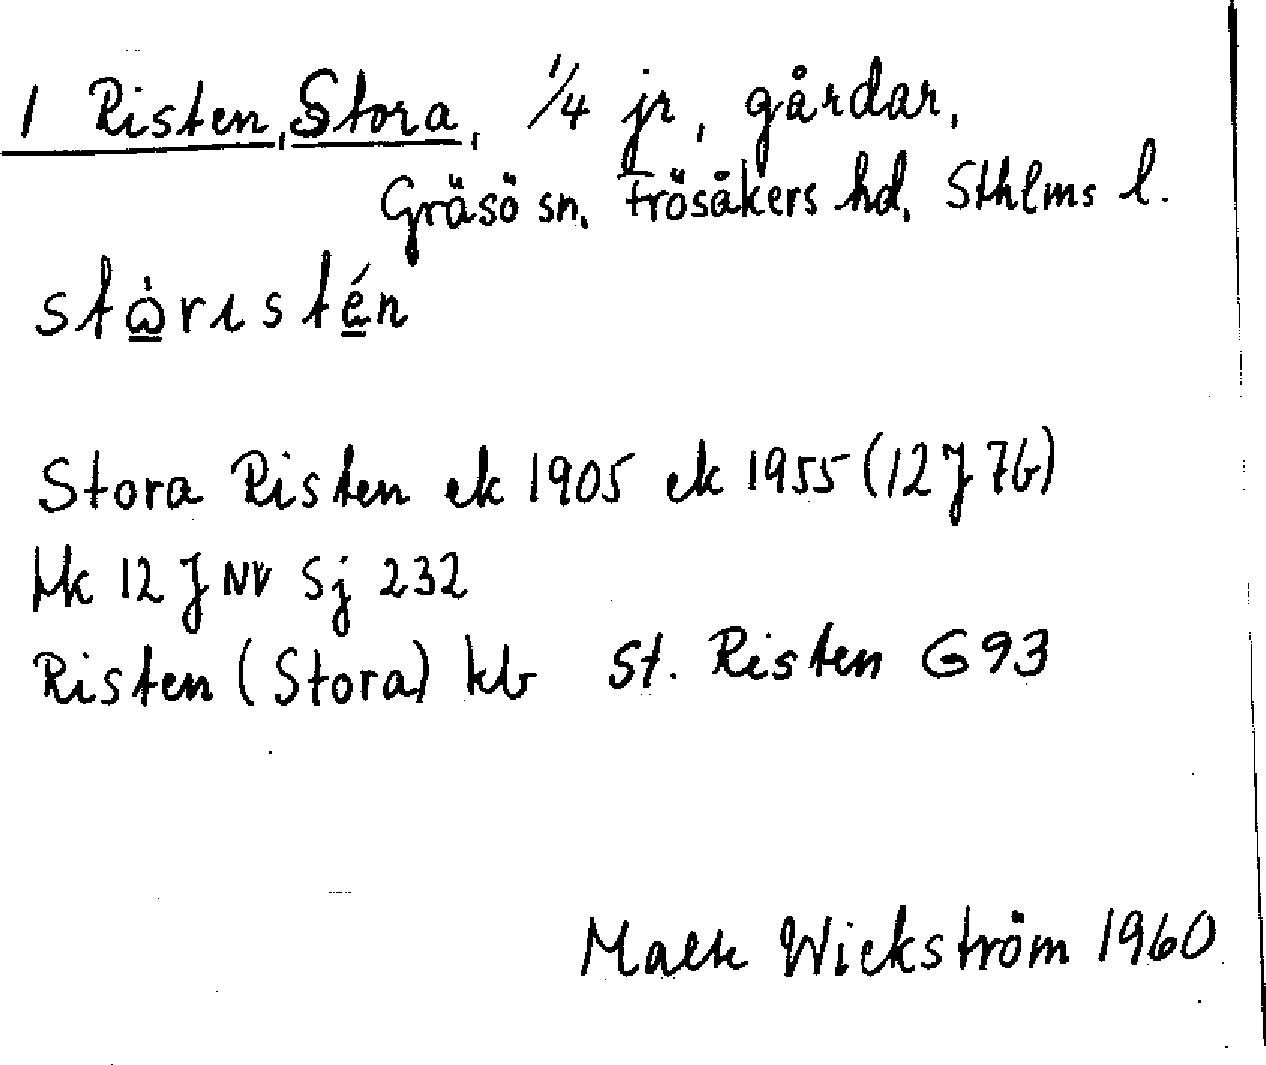 1 Risten, Stora, 1/4 jr, gårdar,
Gräsö sn. Frösåkers hd, Sthlms l.
stὼrıstén
Stora Risten ek 1905 ek 1955 (12 J 7b)
hk 12 J NV Sj 232
Risten (Stora) kb St. Risten G 93
Malte Wickström 1960